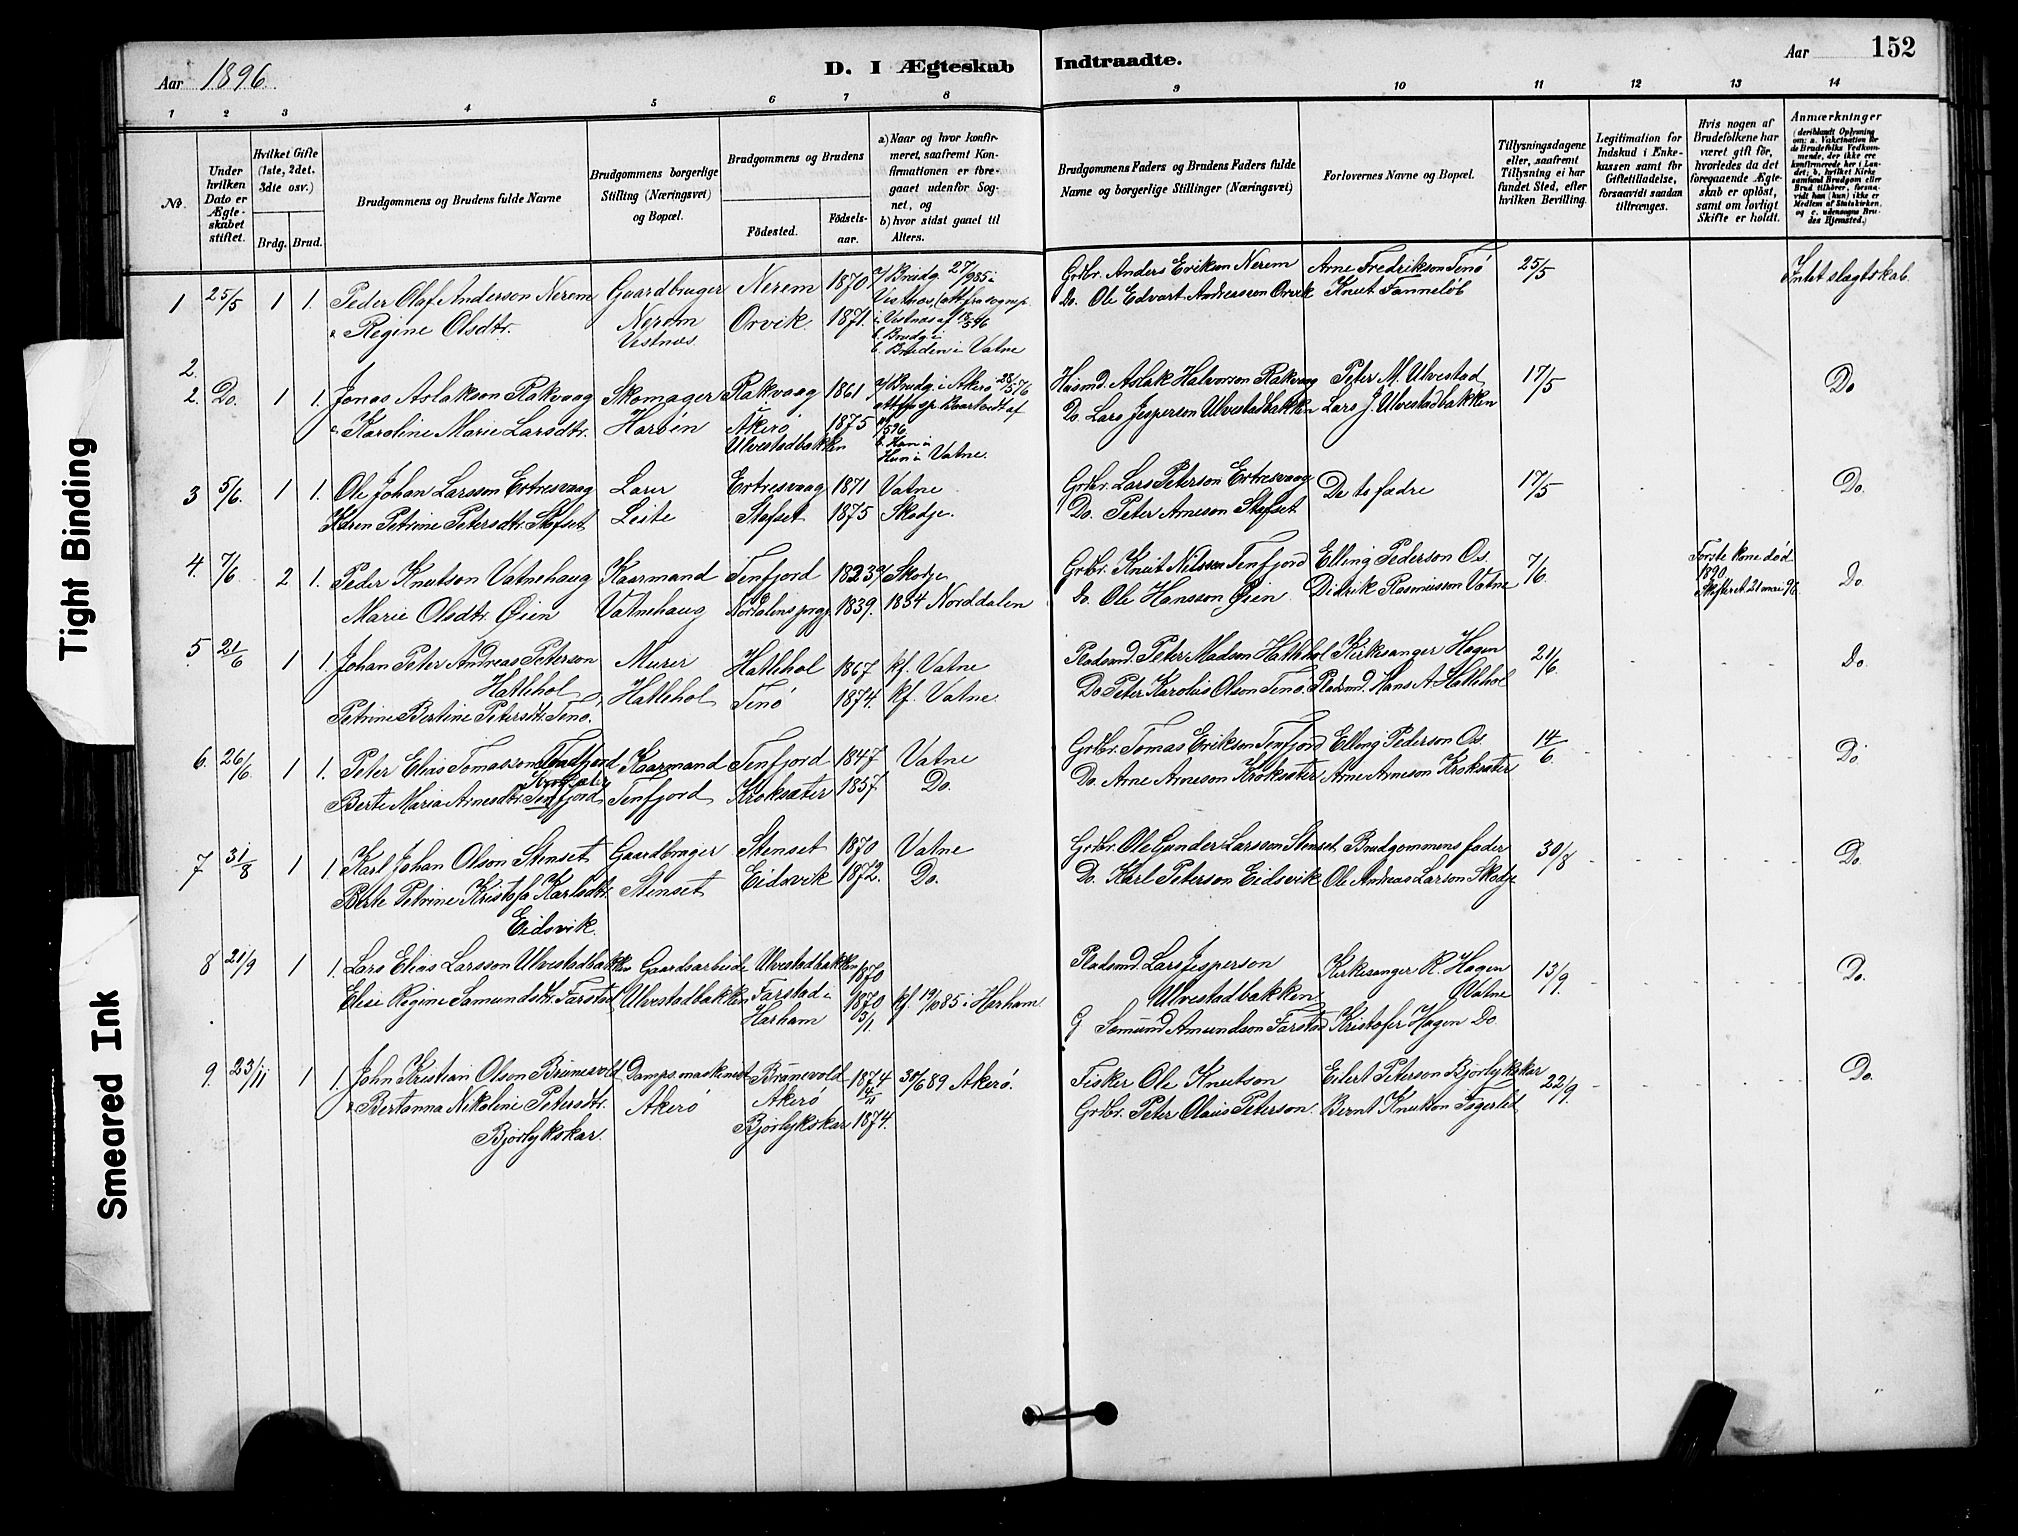 Aar 1896.
D. I Ægteskab Indtraadte.
Aar
152
1 2 3 4 5 6 7 8 9 10 11 12 13 14
No.
Under hvilken Dato er Ægteskabet stiftet.
Hvilket Gifte (1ste, 2det, 3die osv.)
Brdg. Brud.
Brudgommens og Brudens fulde Navne
Brudgommens borgerlige Stilling (Næringsvei) og Bopæl.
Brudgommens og Brudens
Födested.
Födselsaar.
a) Naar og hvor konfirmeret, saafremt Konfirmationen er foregaaet udenfor Sognet, og
b) hvor sidst gaaet til Alters.
Brudgommens Faders og Brudens Faders fulde Navne og borgerlige Stillinger (Næringsvei)
Forlovernes Navne og Bopæl.
Tillysningsdagene eller, saafremt Tillysning ei har fundet Sted, efter hvilken Bevilling.
Legitimation for Indskud i Enkekassen samt for Giftetilladelse, forsaavidt saadan tiltrænges.
Hvis nogen af Brudefolkene har været gift för, hvorledes da det foregaaende Ægteskab er oplöst, samt om lovligt Skifte er holdt.
Anmærkninger (deriblandt Oplysning om: a. Vakcination for de Brudefolks Vedkommende, der ikke ere konfirmerede her i Landet; b. hvilket Kirkesamfund Brudgom eller Brud tilhörer, forsaavidt han (hun) ikke er Medlem af Statskirken, og c. udensogns Brudes Hjemsted.)
1 25/5 1 1. Peder Olaf Anderson Nerem Gaardbruger Nerem 1870 a/ Brudg. 27/9 85 i Grdbr. Anders Erikson Nerem Arne Fredrikson Tenö 25/5 Intet slagtskab.
& Regine Olsdtr. Nerem Orvik. 1871. Vestnæs, (att. fra sognep. Do. Ole Edvart Andreassen Orvik Knut Tanneløb
Vestnæs. i Vestnæs af 18/5 96
b. Brudg i
b. Bruden i Vatne
2.
2. Do. 1 1. Jonas Aslakson Rakvaag Skomager Rakvaag 1861 a/ Brudg. i Akerö 28/5 76 Husmd. Aslak Halvorson Rakvaag Peter M. Ulvestad 17/5 Do
& Karoline Marie Larsdtr. Haröen Akerö 1875 Do. Lars Jesperson Ulvestadbakken Lars J. Ulvestadbakken
Ulvestadbakken
Hun i Vatne.
3 5/6. 1 1. Ole Johan Larsson Ertresvaag Larer Ertresvaag 1871 Vatne Grdbr. Lars Peterson Ertresvaag De to fædre 17/5 Do.
Karen Petrine Petersdtr. Stefset Leite Stefset 1875 Skodje. Do. Peter Arneson Stefset
4. 7/6 2 1. Peder Knutson Vatnehaug Kaarmand Tenfjord 1823 Skodje Grdbr. Knut Nilsson Tenfjord Elling Pederson Os. 7/6 Forste kone död 1890 Do
Marie Olsdtr. Øien Vatnehaug Nordalens prgj. 1839. 1854 Norddalen Do. Ole Hansson Øien. Didrik Rasmusson Vatne Skifteret 21 mai 96.
5. 21/6 1 1. Johan Peter Andreas Peterson Murer Hatlehol 1867 kf. Vatne Pladsmd. Peter Madson Hatlehol Kirksanger Hagen 21/6. Do.
Hatlehol Hatlehol Tenö 1874. kf. Vatne. Do Peter Karolus Olson Tenö. Pladsmd. Hans A Hatlehol
Petrine Bertine Petersdtr. Tenö.
6. 26/6. 1 1. Peter Elias Tomasson Tendfjord Kaarmand Tenfjord 1847 Vatne Grdbr. Tomas Erikson Tenfjord Elling Pederson Os. 14/6. Do.
Berte Maria Arnesdtr. Tenfjord Tenfjord Kroksæter 1857 Do. Do. Arne Arneson Kroksæter Arne Arneson Kroksæter
7 31/8 1 1. Karl Johan Olson Stenset Gaardbruger Stenset 1870 Vatne Grdbr. Ole Gunder Larsson Stenset Brudgommens fader 30/8 Do.
Berte Petrine Kristofa Karlsdtr. Stenset Eidsvik 1872. Do. Do. Karl Peterson Eidsvik Ole Andreas Larson Skodje
Eidsvik.
8 21/9 1 1. Lars Elias Larsson Ulvestadbakken Gaardsarbeide Ulvestadbakken 1870 Pladsmd. Lars Jesperson Kirkesanger R. Hagen 13/9 Do.
Elise Regine Samundsdtr. Farstad Ulvestadbakken Farstad i 1870 kf 19/10 85 i Harham Ulvestadbakken Vatne
Harham 5/1. G Samund Amundson Farstad Kristofer Hagen Do.
9. 23/11 1 1. John Kristian Olson Brunevold Dampsmaskinist Brunevold 1874 30/6 89 Akerö. Fisker Ole Knutson Eilert Peterson Bjorlykskar 22/9 Do.
& Bertanna Nikoline Petersdtr. Akerö Akerö 14/11 Grdbr. Peter Olaus Peterson. Bernt Knutson Fagerlid
Bjorlykskar. Bjorlykskar 1874.
Tight Binding
Smeared Ink